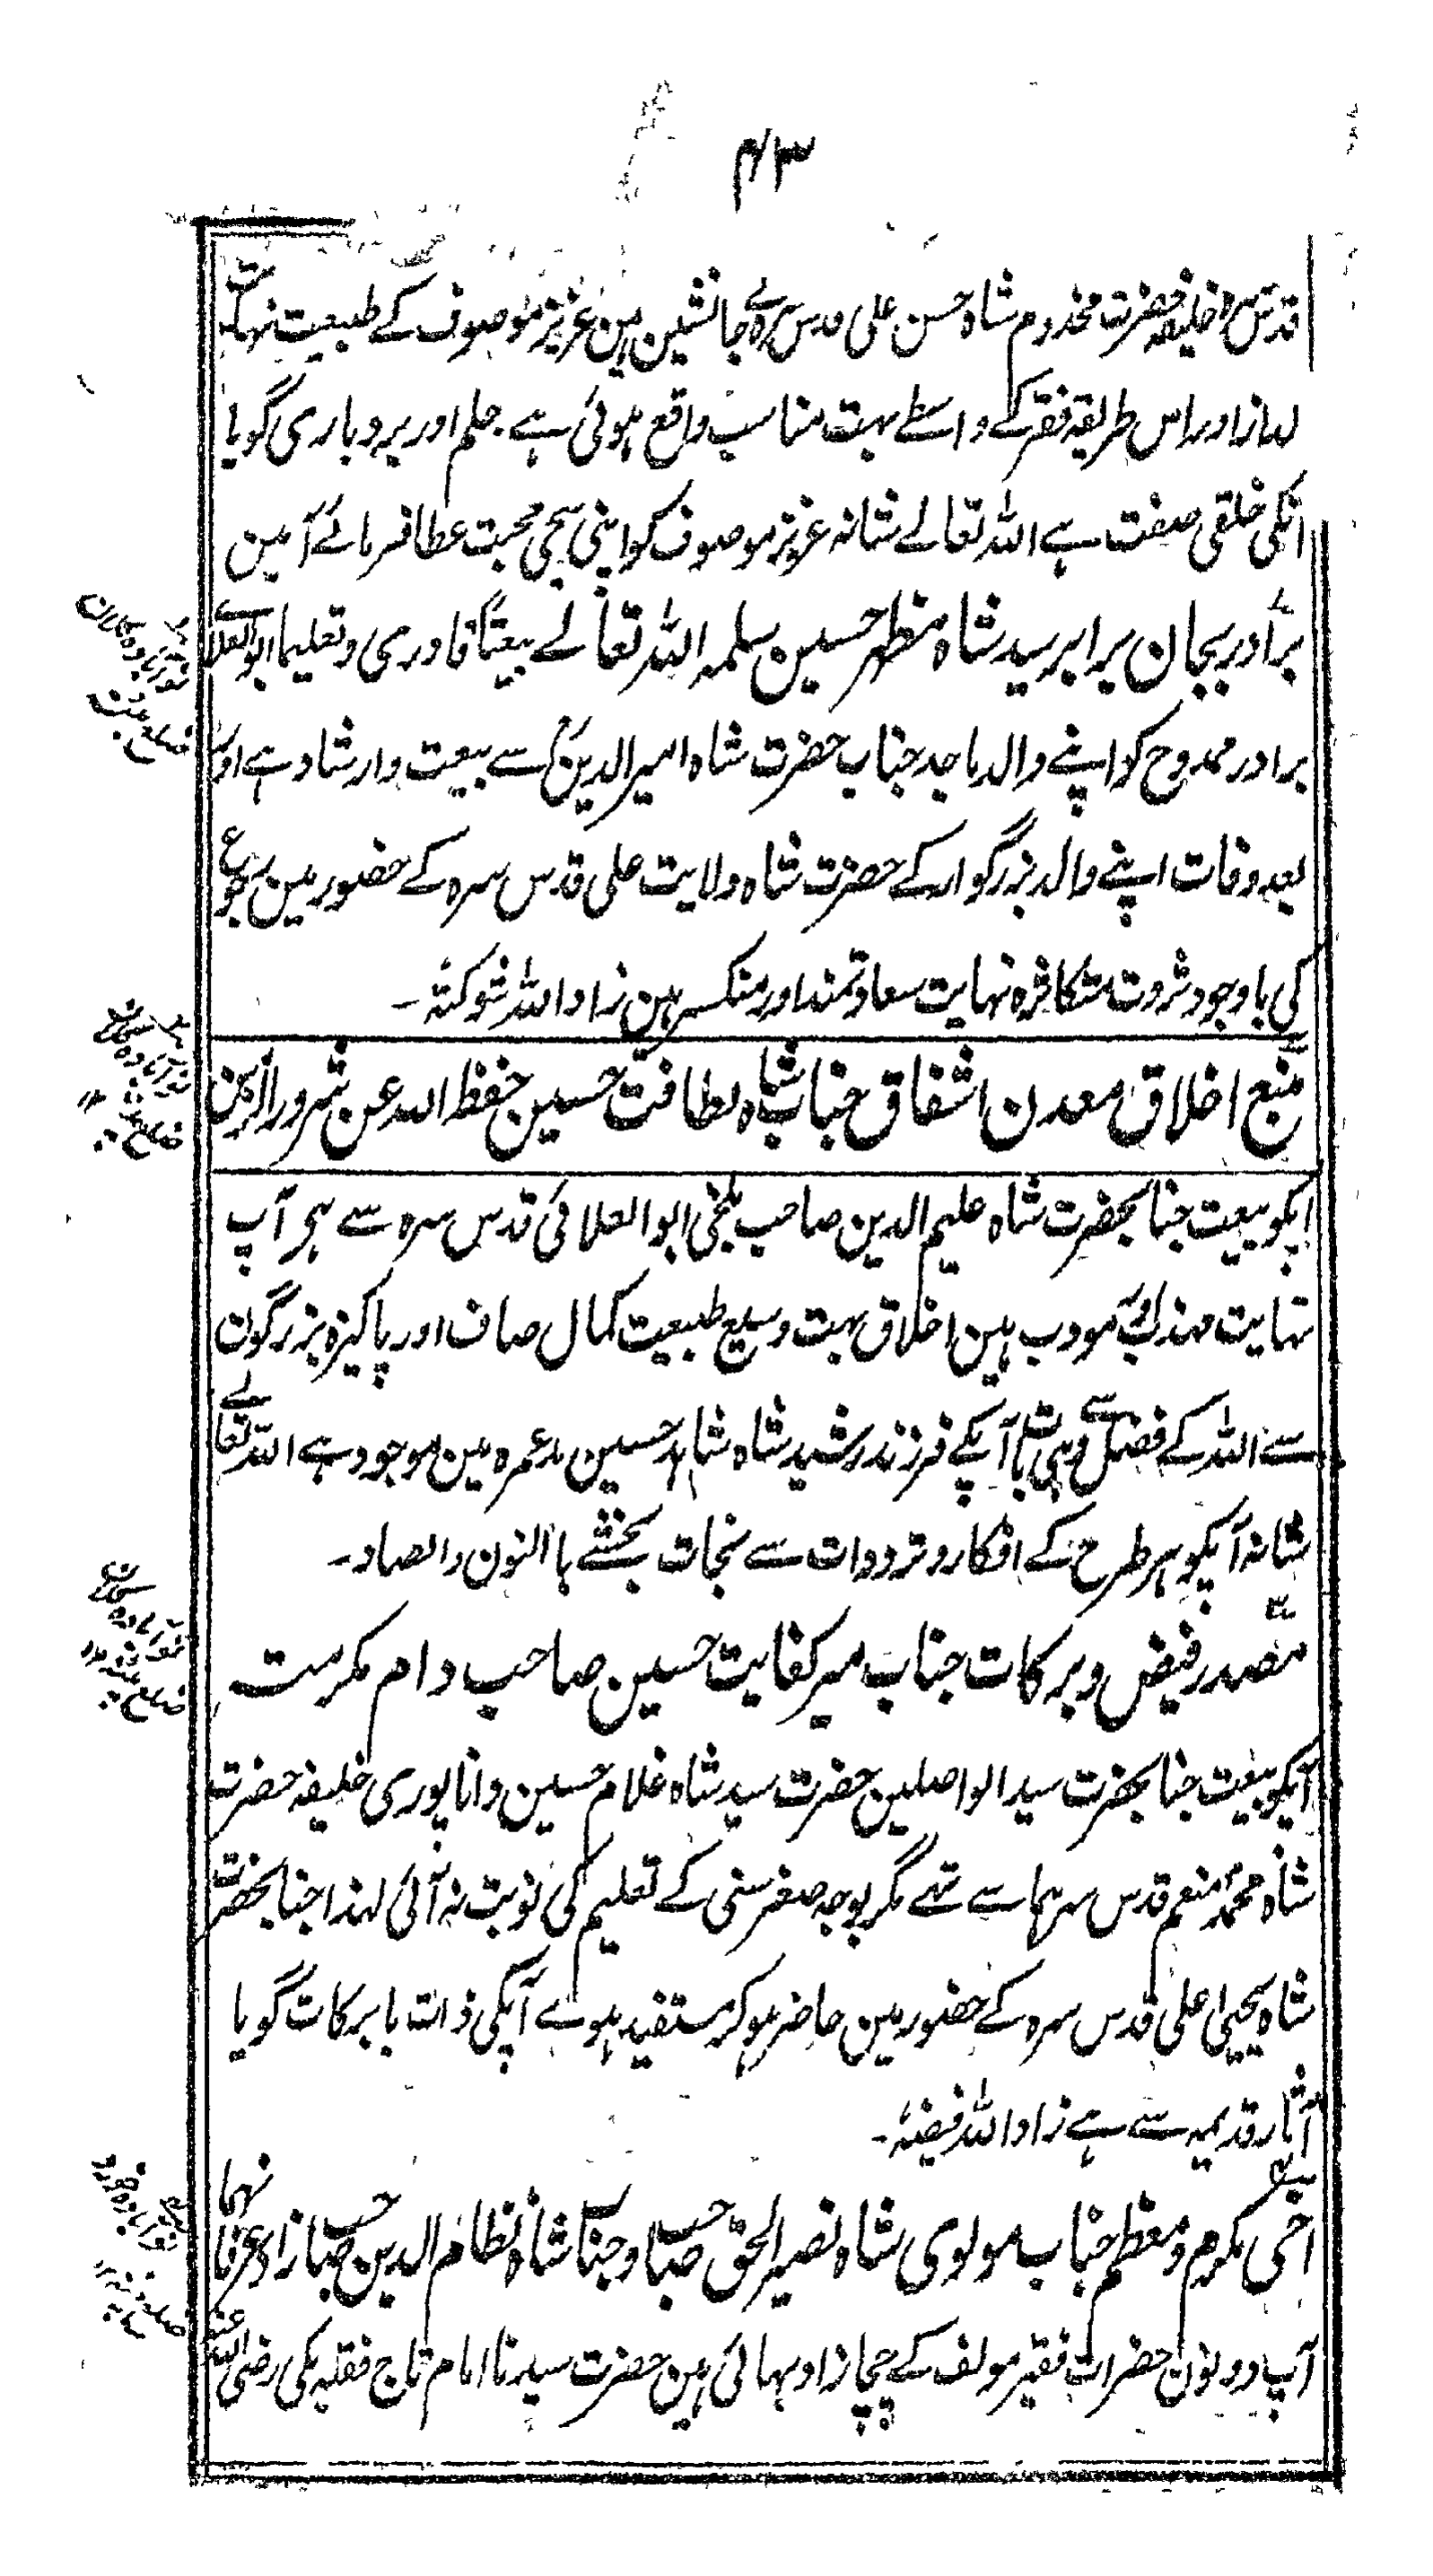 ۴۳
قدس سرہ خلیفہ حضرت مخدوم شاہ حسن علی قدس سرہ کے جانشین ہین عزیز موصوف کے طبیعت نہایت
اور اس طریقہ فقر کے واسطے بہت مناسب واقع ہوئی ہے حلم اور بردباری گویا
انکی خلقی صفت ہے اللہ تعالے شانہ عزیز موصوف کو اپنی سچی محبت عطا فرمائے آمین
برادر بجان برابر سید شاہ مظہر حسین سلمہ اللہ تعالے بیعتاً قادری و تعلیما ابوالعلائے
برادر ممدوح کو اپنے والد ماجد جناب حضرت شاہ امیر الدین سے بیعت وارشاد ہے اور
بعد وفات اپنے والد بزرگوار کے حضرت شاہ ولایت علی قدس سرہ کے حضور مین رجوع
کی باوجود ثروت متکاثرہ نہایت سعادتمند اور منکسر ہین زاد اللہ شوکتہٗ۔
منبع اخلاق معدن اشفاق جناب شاہ لطافت حسین حفظ اللہ عن شرور الزمن
آپکو بیعت جنابحضرت شاہ علیم الدین صاحب بلخی ابوالعلائی قدس سرہ سے ہر آپ
نہایت مہذب اور مودب ہین اخلاق بہت وسیع طبیعت کمال صاف اور پاکیزہ بزرگون
سے اللہ کے فضل سے وہی بات آپکے فرزند رشید شاہ شاہد حسین مد عمرہ مین موجود ہے اللہ تعالے
شانہ آپکو ہر طرح کے افکار و ترددات سے نجات بخشے باالنون والصاد۔
مصدر فیض و برکات جناب میر کفایت حسین صاحب دام مکرمت
آپکو بیعت جنابحضرت سید الواصلین حضرت سید شاہ غلام حسین داناپوری خلیفہ حضرت
شاہ محمد منعم قدس سرہما سے تہے مگر بوجہ صغر سنی کے تعلیم کی نوبت نہ آئی لہذا جنابحضرت
شاہ یحییٰ علی قدس سرہ کے حضور مین حاضر ہو کر مستفید ہوے آپکی ذات بابرکات گویا
آثار قدیمہ سے ہے زاد اللہ فیضہٗ۔
اخی مکرم و معظم جناب مولوی شاہ نصیر الحق صاحب و جناب شاہ نظام الدین صاحب زاد عرفانہما
آپ دونون حضرات فقیر مولف کے چچازاد بہائی ہین حضرت سیدنا امام تاج فقیہ مکی رضی اللہ عنہ